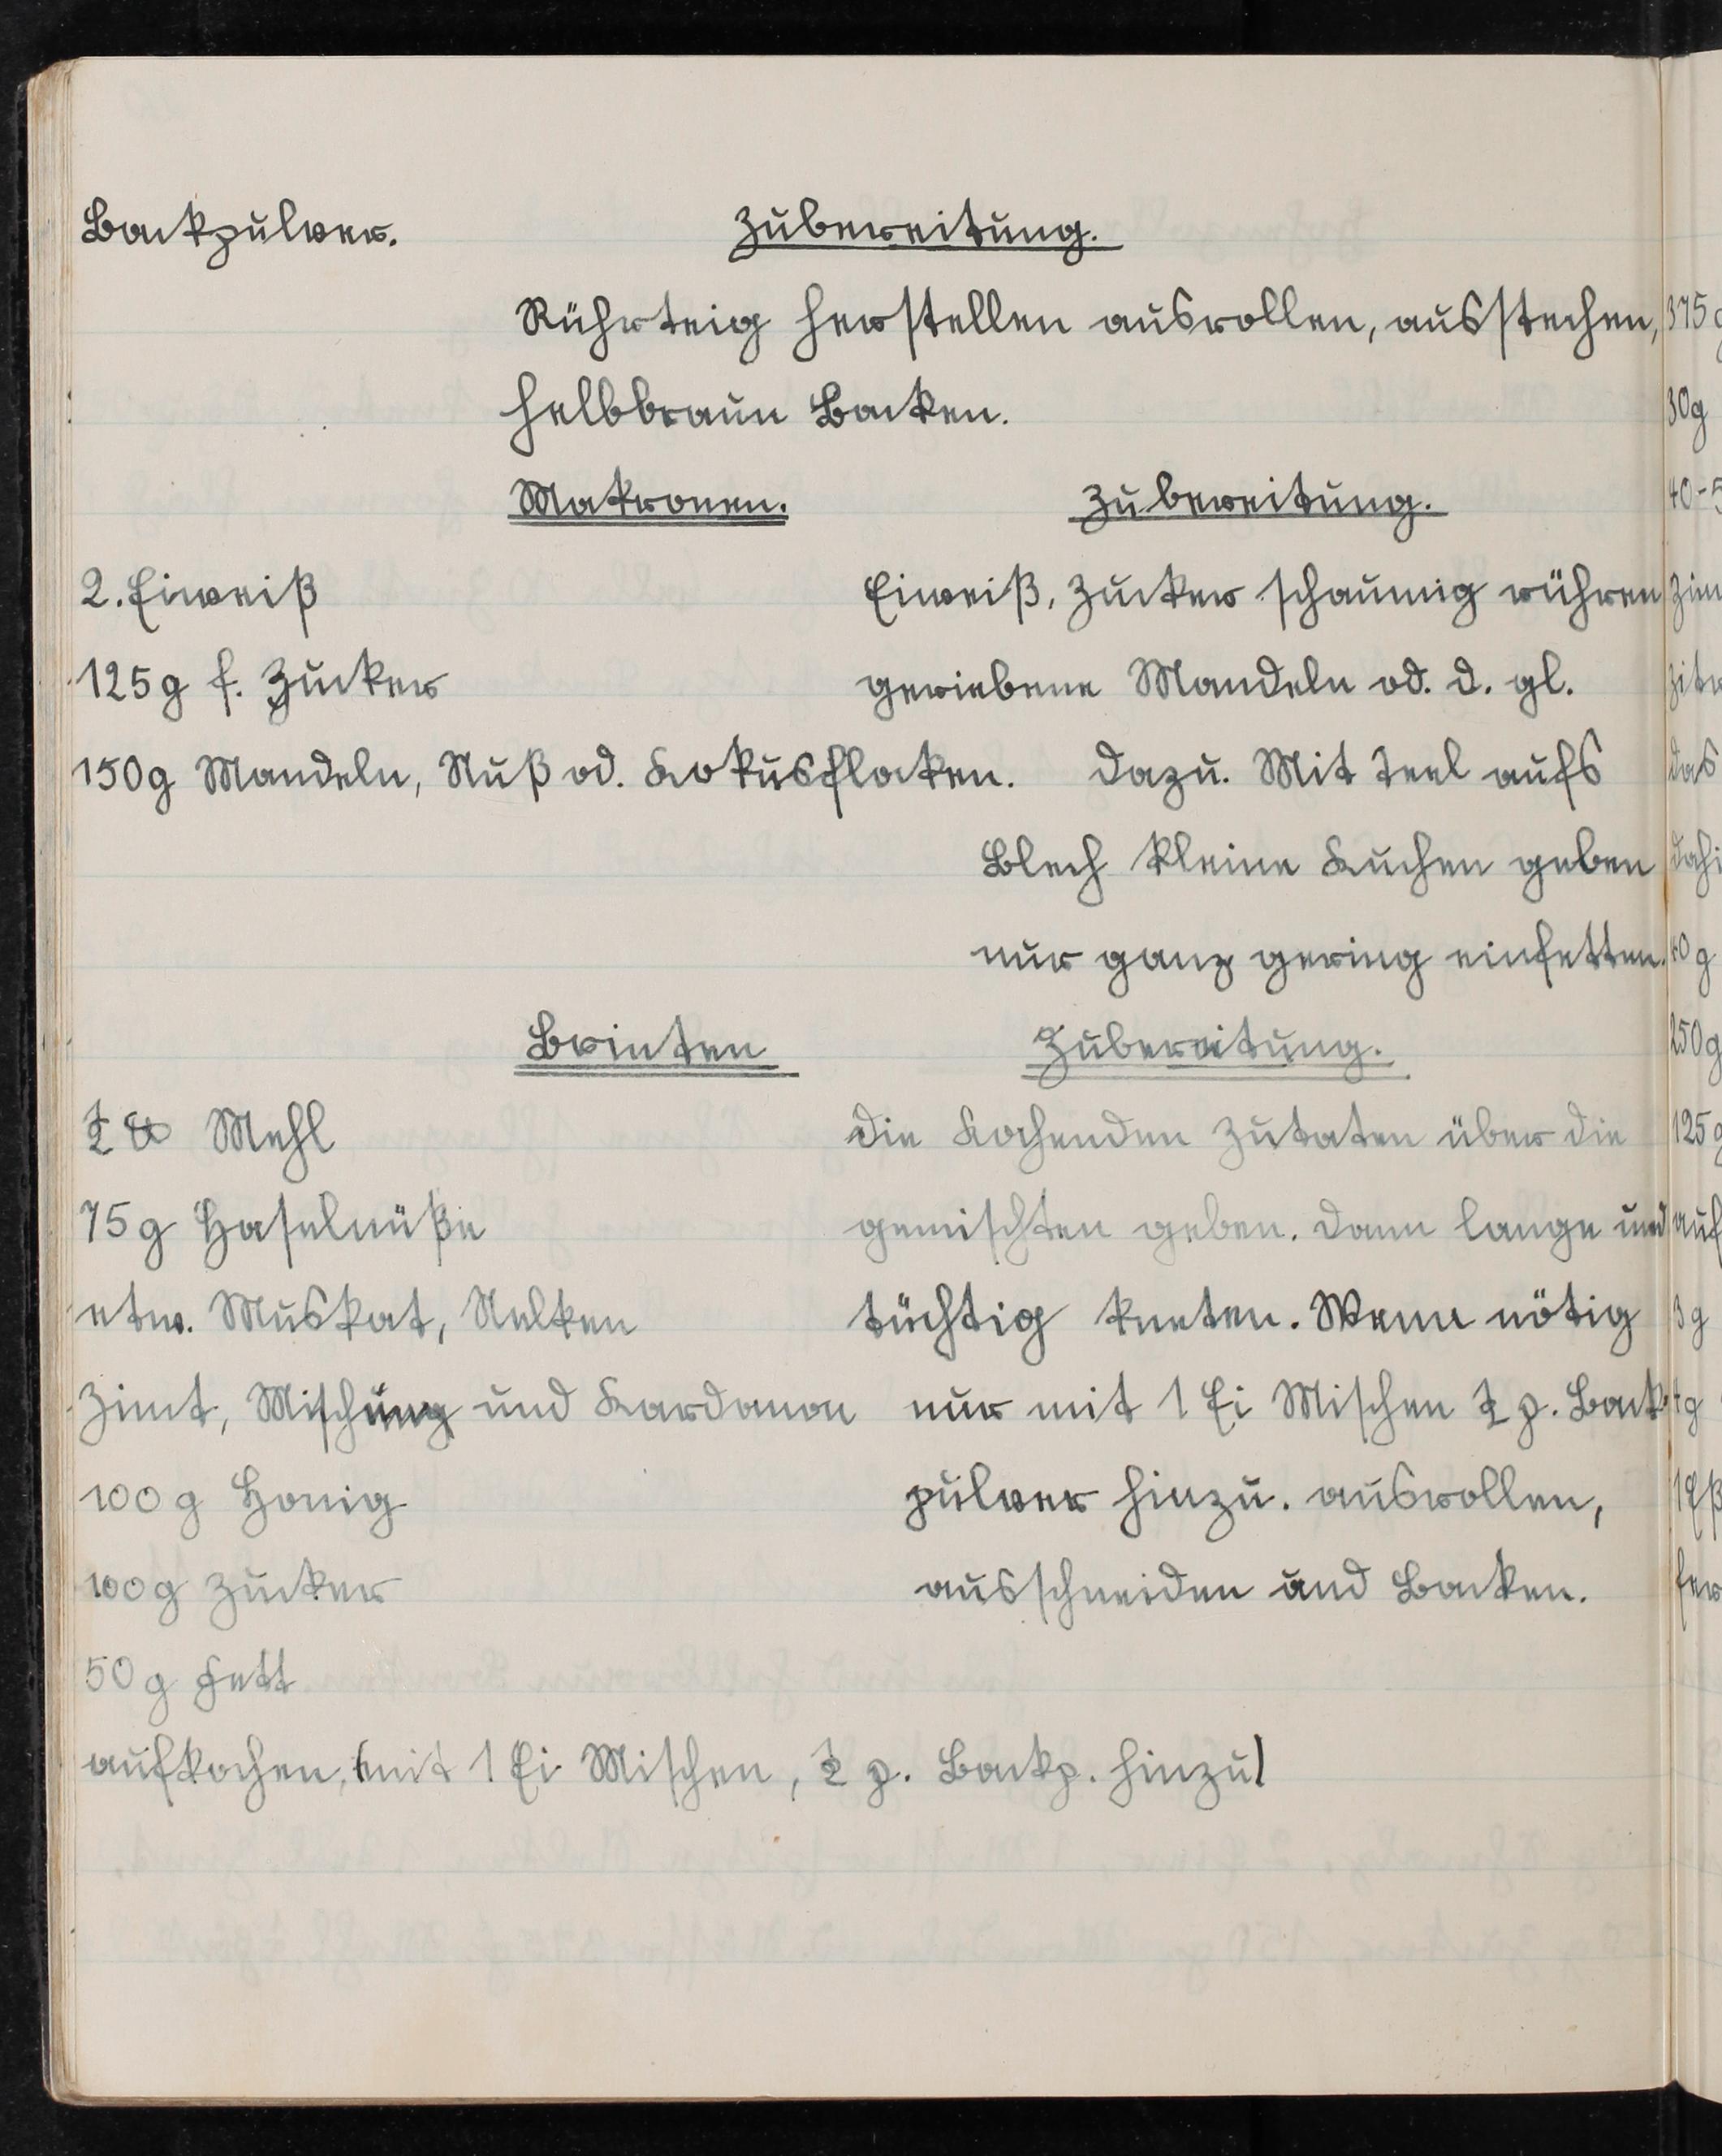 Backpulver.
Zubereitung.
Rührteig herstellen ausrollen, ausstechen,
hellbraun Backen.
Makronen.
Zubereitung.
2. Eiweiß
125g f. Zucker
150g Mandeln, Nuß od. Kokusflocken.
Einweiß, Zucker schaumig rühren
geriebene Mandeln od. d. gl.
dazu. Mit Teel aufs
Blech kleine Kuchen geben
nur ganz gering einfetten.
Brinten
Zubereitung.
½ ℔ Mehl
75g Haselnüße
etw. Muskat, Nelken
Zimt, Mischung und Kardamon
100g Honig
100g Zucker
50g Fett
aufkochen, (mit 1 Ei Mischen, ½ p. Backp. hinzu)
Die Kochenden Zutaten über die
gemischten geben. Dann lange und
tüchtig kneten. Wenn nötig
nur mit 1 Ei Mischen ½ p. Back-
pulver hinzu. ausrollen,
ausschneiden und Backen.
375g
30g
40-5
das
250g
125g
auf
3g